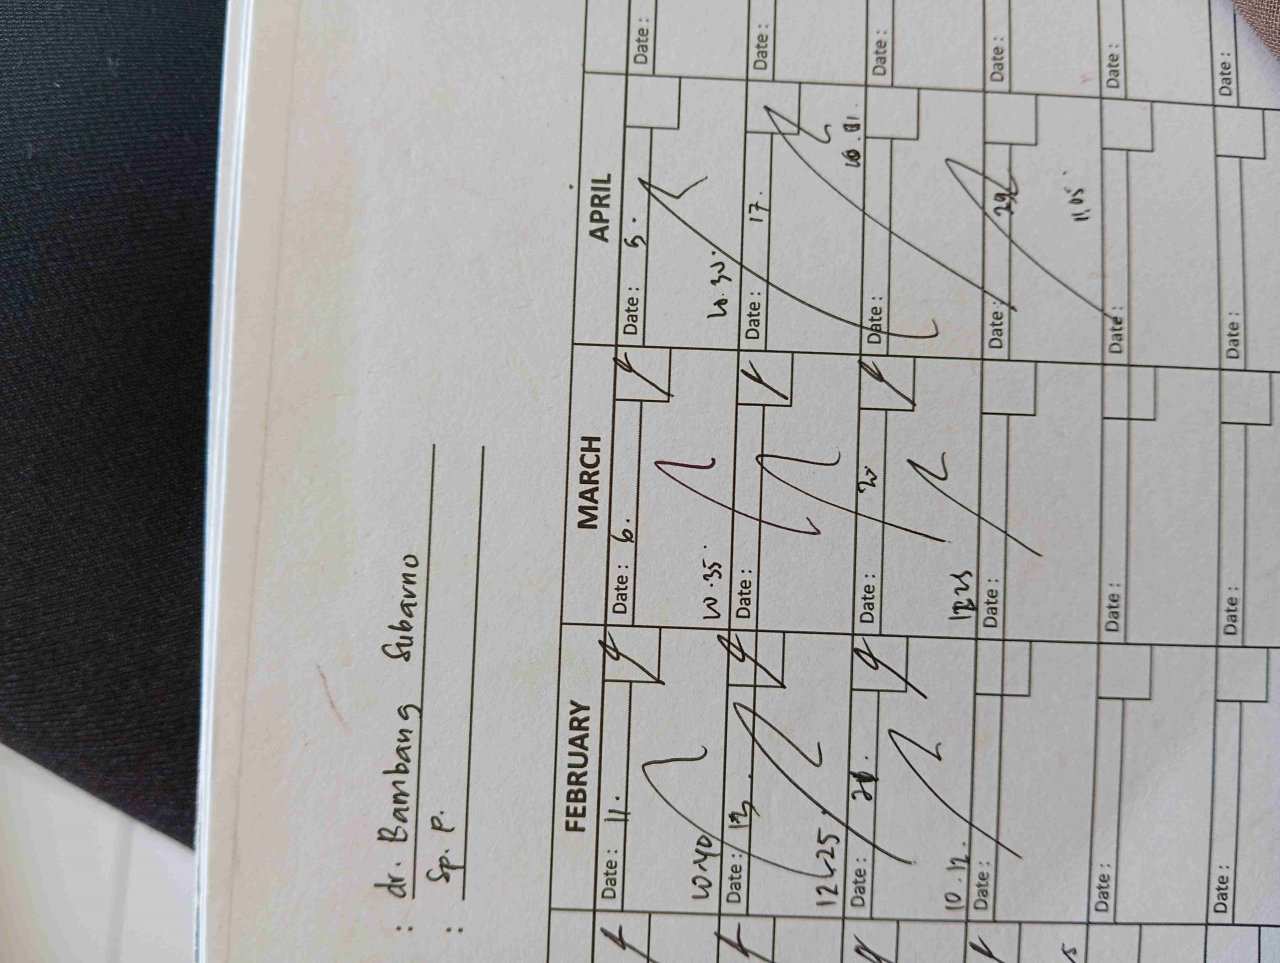 : dr. Bambang Subarno
: Sp. P.
FEBRUARY MARCH APRIL
Date : 11. Date : 6. Date : 5. Date :
10.40 10.35 10.30.
Date : 13. Date : Date : 17. Date :
12.25 10.01.
Date : Date : Date : Date :
10.12. 12.25
Date : Date : Date : 29 Date :
11.05
Date : Date : Date : Date :
Date : Date : Date : Date :